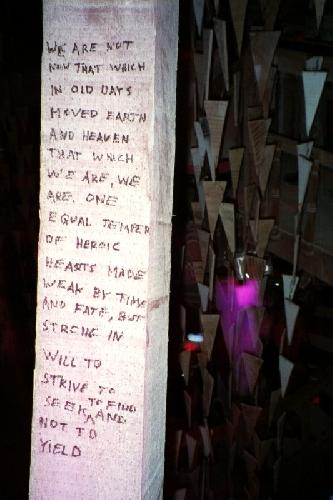 WE ARE NOT
NOW THAT WHICH
IN OLD DAYS
MOVED EARTH
AND HEAVEN
THAT WHICH
WE ARE, WE
ARE. ONE
EQUAL TEMPER
OF HEROIC
HEARTS MADE
WEAK BY TIME
AND FATE, BUT
STRONG IN
WILL TO
STRIVE TO
SEEK ^ TO FIND AND
NOT TO
YIELD